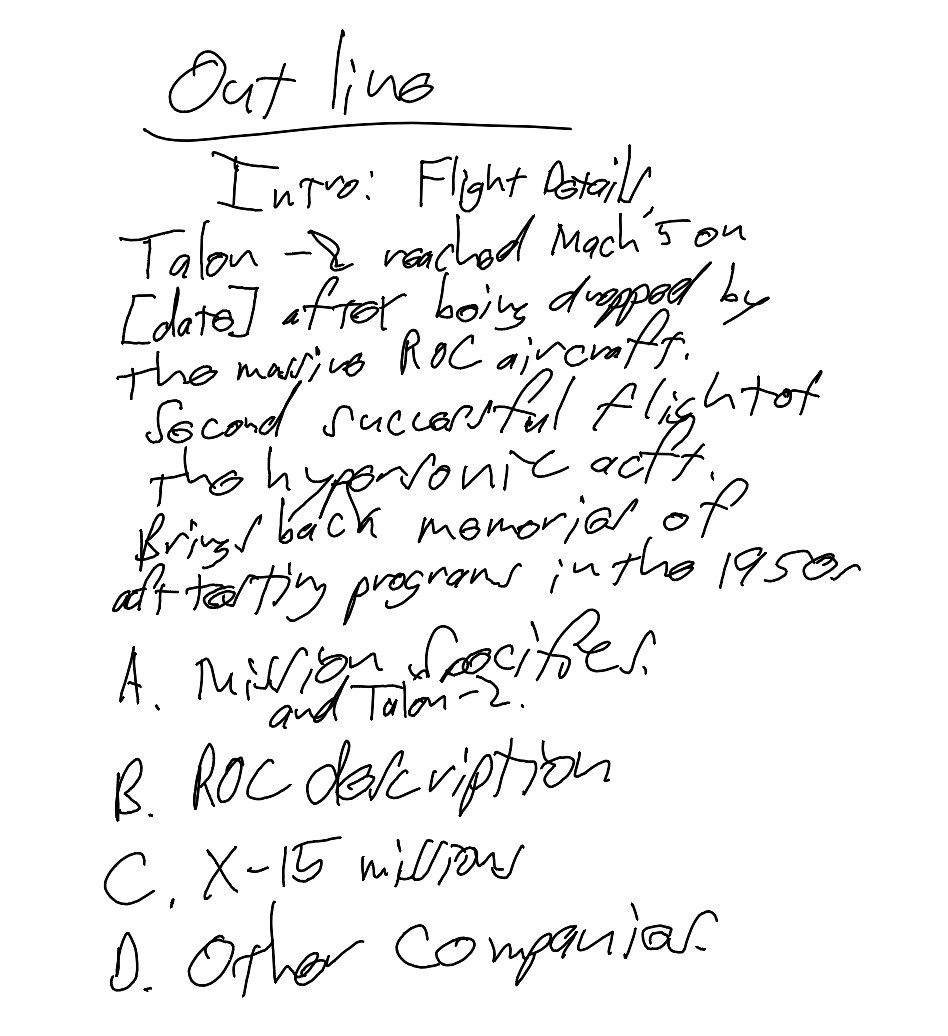 Out line
Intro: Flight Details.
Talon-2 reached Mach 5 on
[date] after being dropped by
the massive ROC aircraft.
Second successful flight of
the hypersonic acft.
Brings back memories of
acft testing programs in the 1950s
A. Mission Specifics.
and Talon-2.
B. ROC description
C. X-15 missions
D. Other Companies.